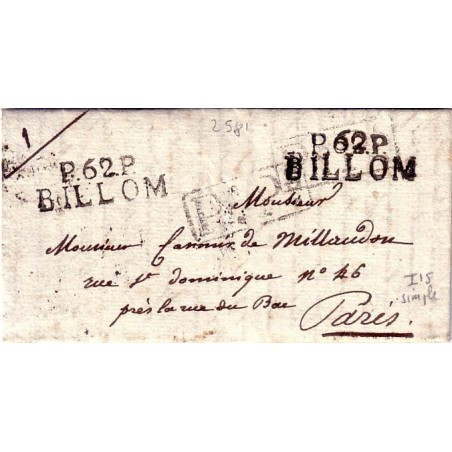 2581
1
P.62.P.
BILLOM
P.62.P.
BILLOM
P.P.
Monsieur
Monsieur Casimir de Millaudon
rue St dominique n° 46
près la rue du Bac
Paris.
I15
simple